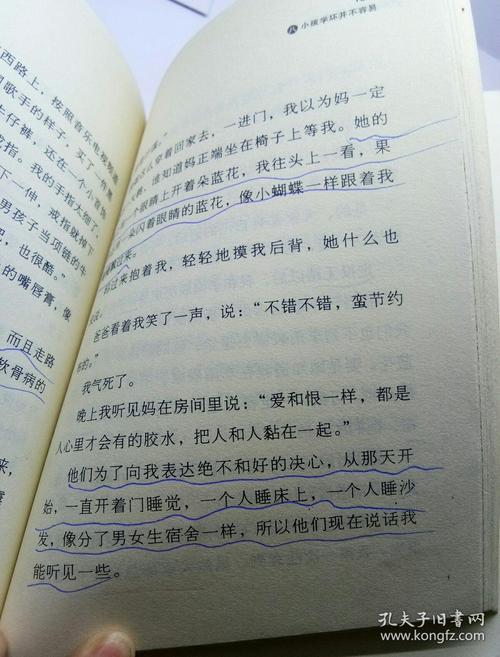 西路上，按照音乐电视频道
歌手的样子，买了一件
牛仔裤，还在一个小首饰
戒指。我的手指太细了，
一伸，戒指就掉下
男孩子当项链的牛
吧，也很酷。”
的嘴唇膏，像
而且走路
软骨病的
来，
八 小孩学坏并不容易
穿着回家去，一进门，我以为妈一定
谁知道妈正端坐在椅子上等我。她的
一个眼睛上开着朵蓝花，我往头上一看，果
一朵闪着眼睛的蓝花，像小蝴蝶一样跟着我
过来。
过来抱着我，轻轻地摸我后背，她什么也
爸爸看着我笑了一声，说：“不错不错，蛮节约
的。”
我气死了。
晚上我听见妈在房间里说：“爱和恨一样，都是
人心里才会有的胶水，把人和人黏在一起。”
他们为了向我表达绝不和好的决心，从那天开
始，一直开着门睡觉，一个人睡床上，一个人睡沙
发，像分了男女生宿舍一样，所以他们现在说话我
能听见一些。
孔夫子旧书网
www.kongfz.com